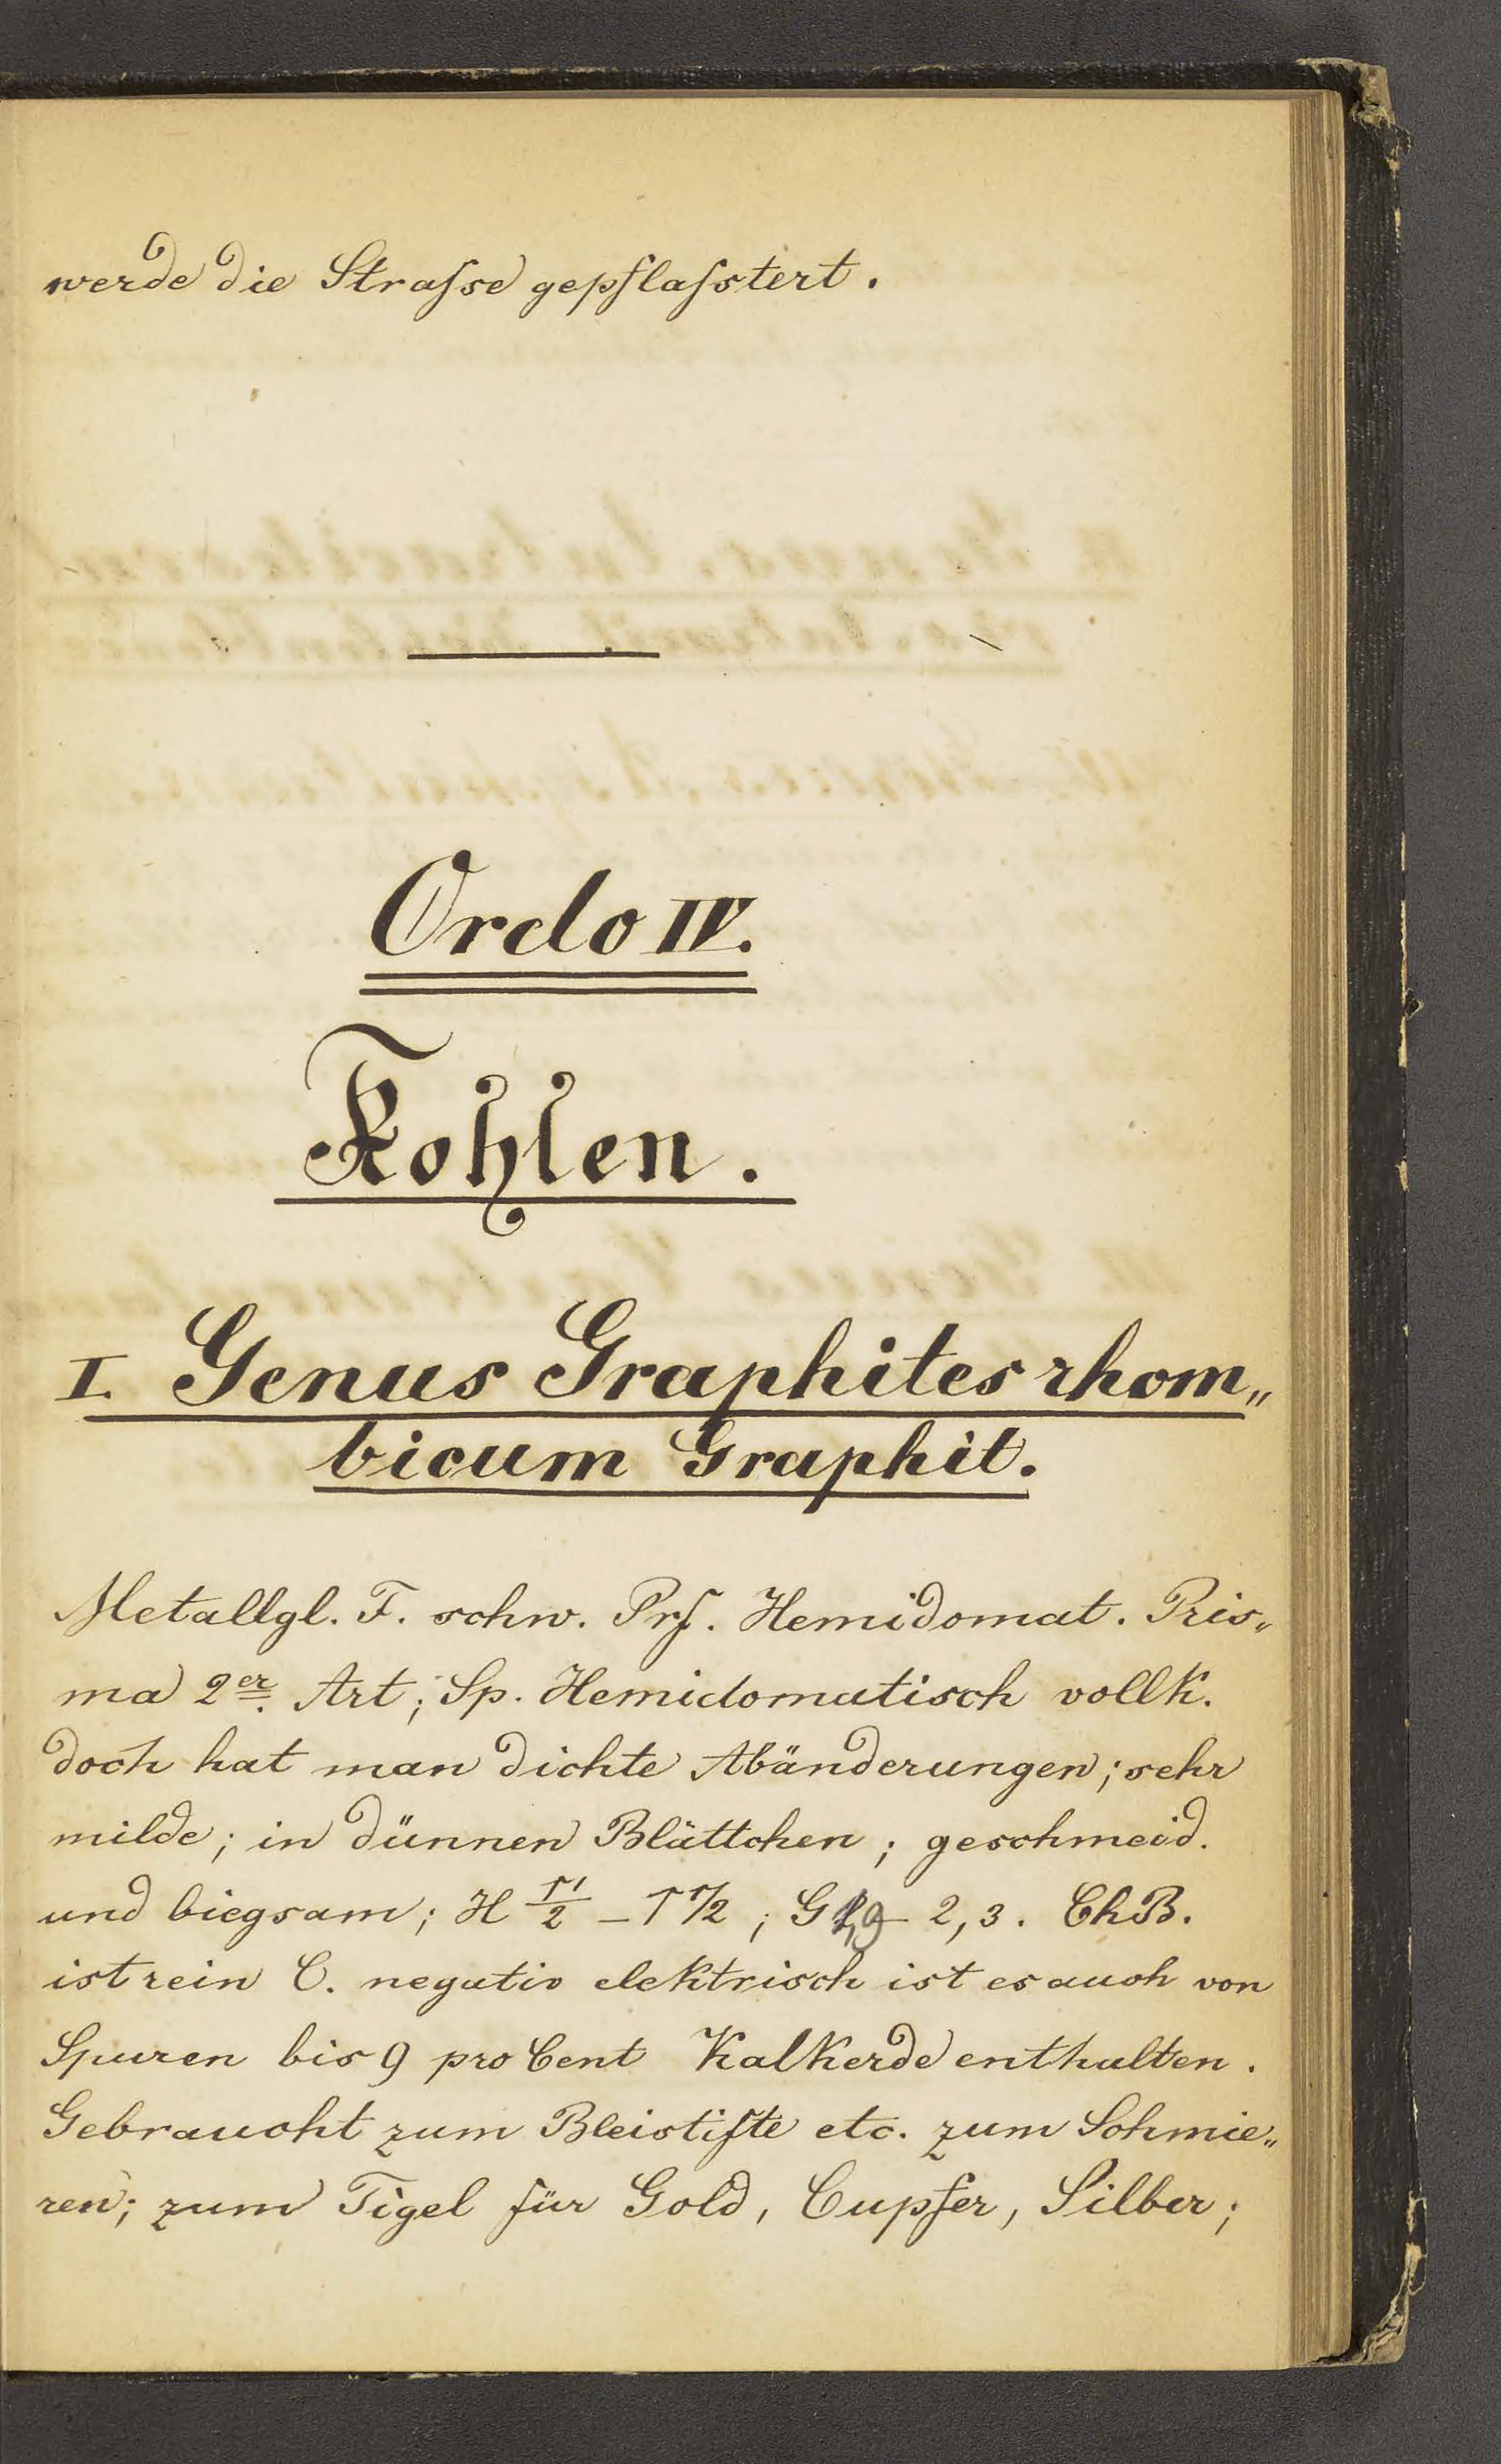 werde die Straſse gepflaſstert.
Ordo IV.
Kohlen.
I. Genus Graphites rhom„
bicum Graphit.
Metallgl. F. schw. Prſ. Hemidomat. Pris„
ma 2er. Art; Sp. Hemidomatisch vollk.
doch hat man dichte Abänderungen; sehr
milde; in dünnen Blättchen; geschmeid.
und biegsam; H 1/2 – 1 1/2; G 1,9 – 2,3. ChB.
ist rein C. negativ elektrisch ist es auch von
Spuren bis 9 pro Cent Kalkerde enthalten.
Gebraucht zum Bleistifte etc. zum Schmie„
ren; zum Tigel für Gold, Cupfer, Silber;